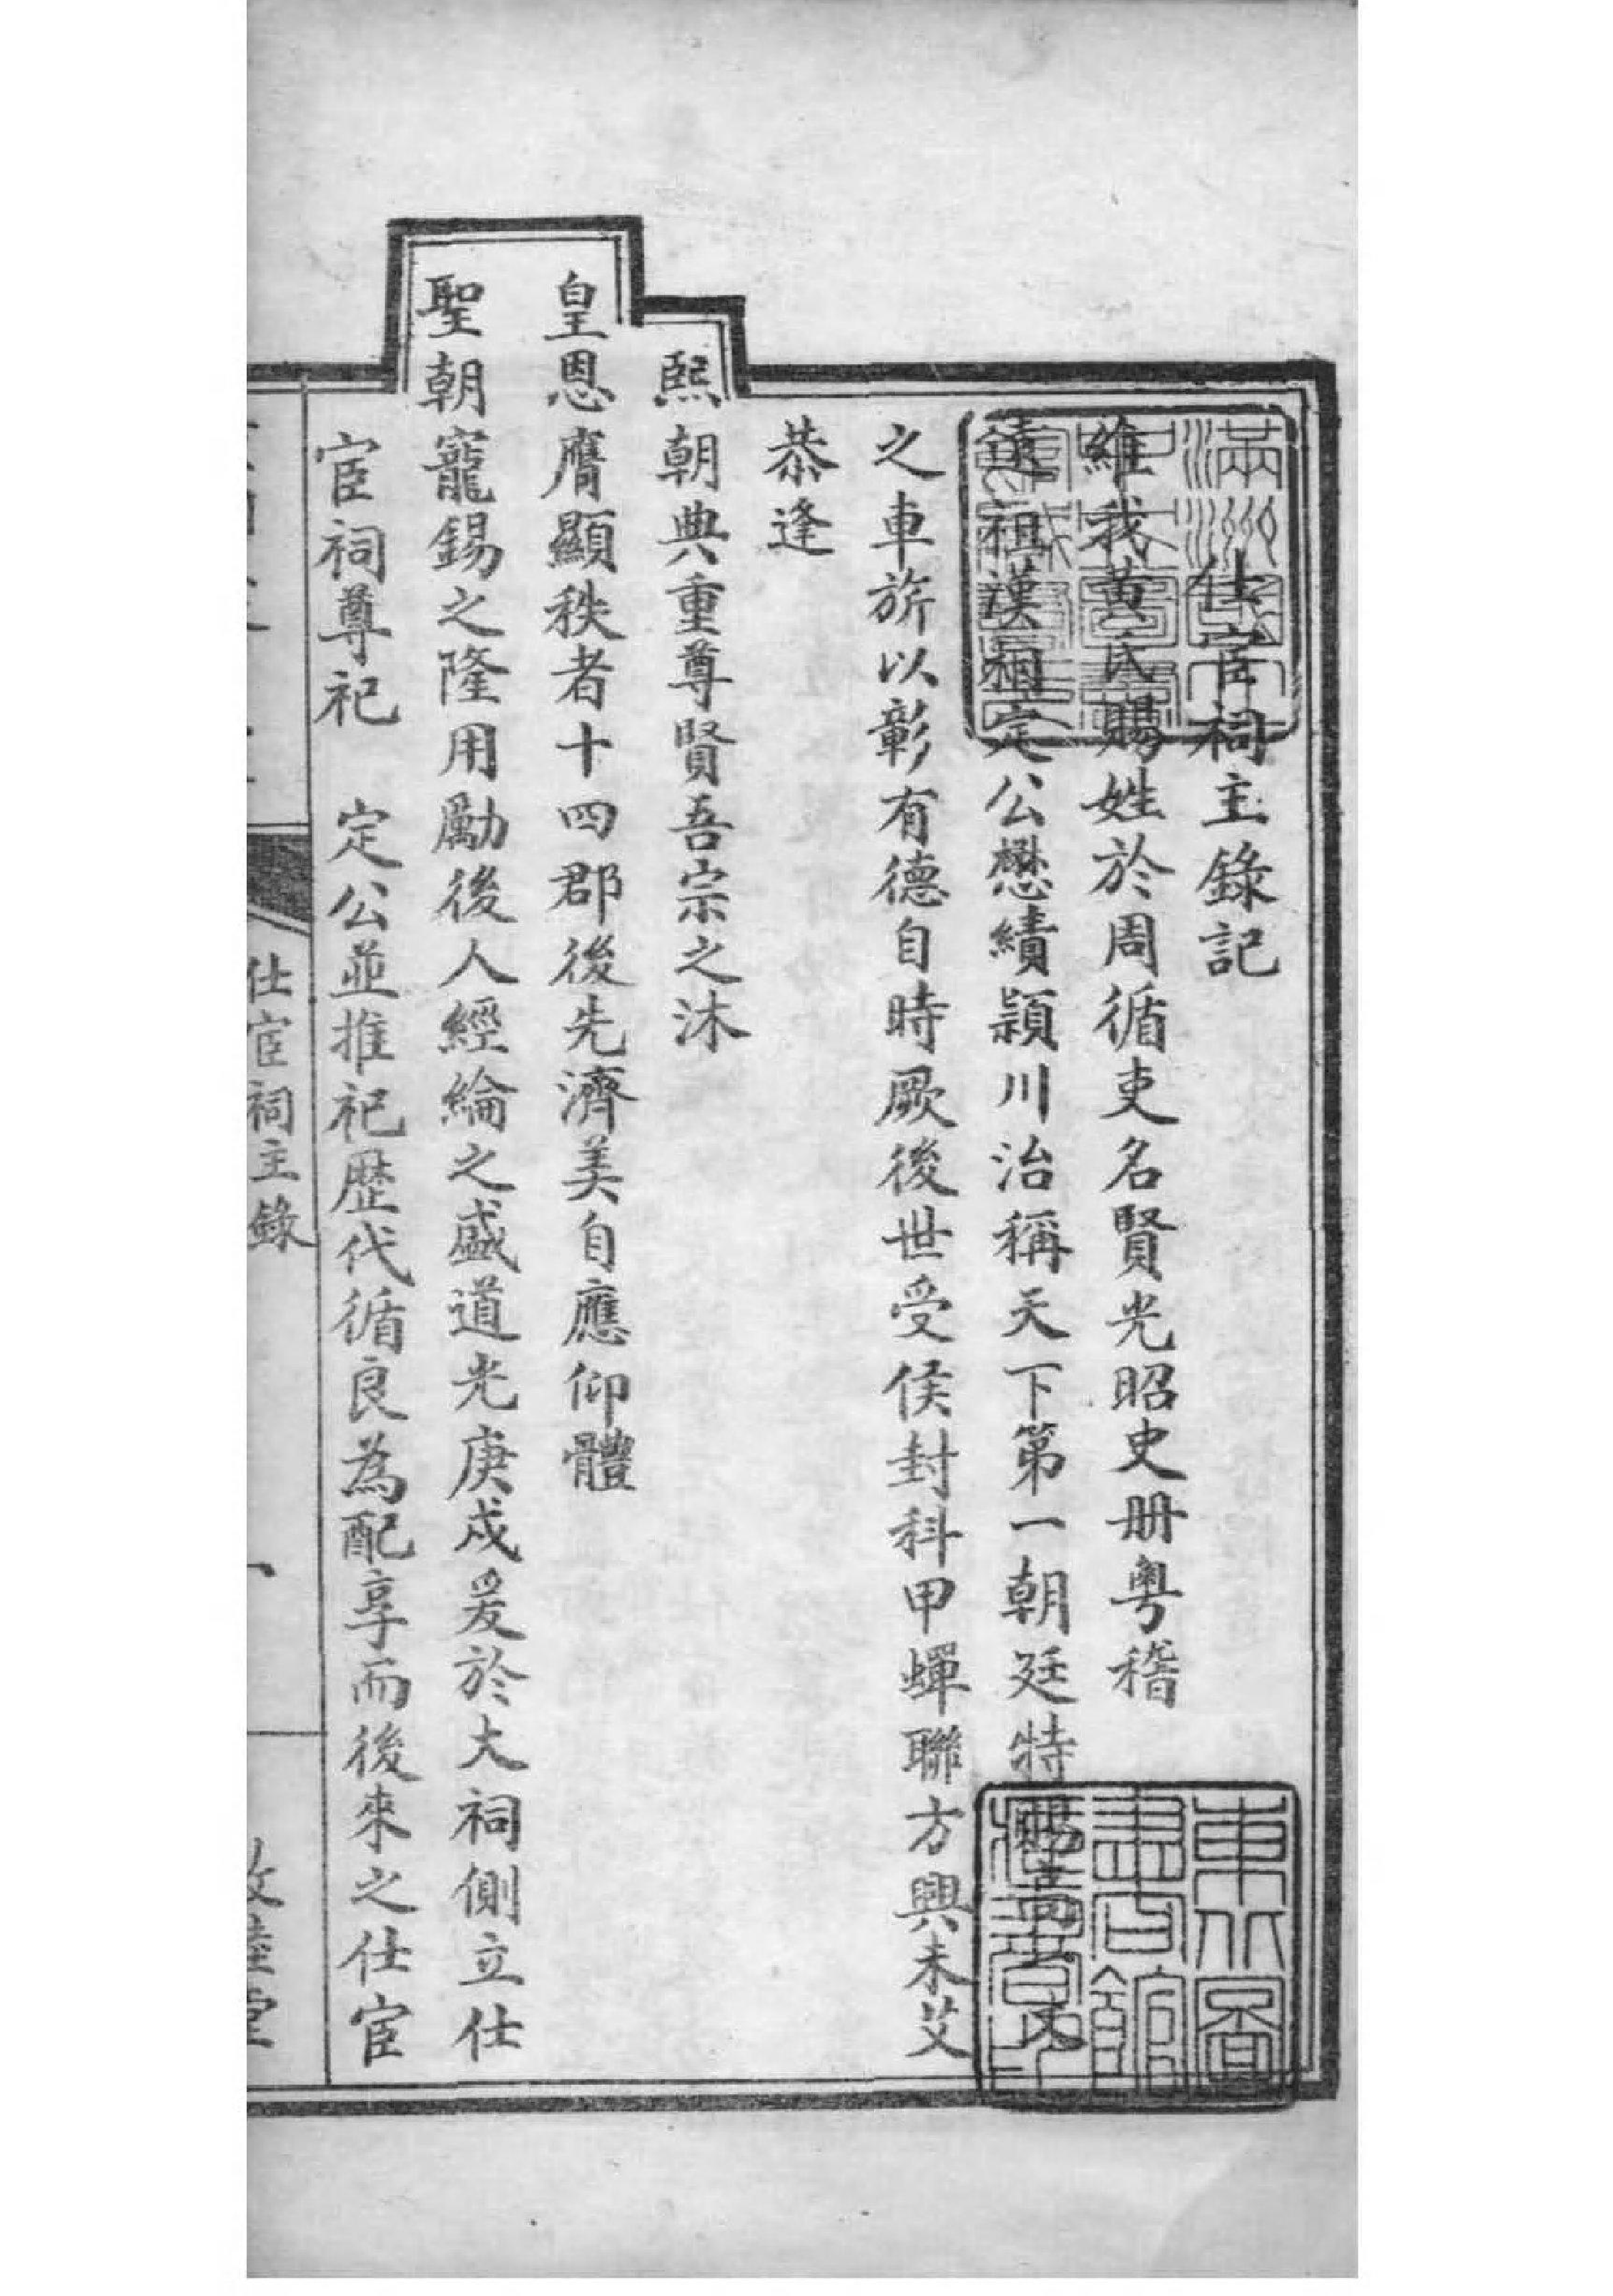 仕宦祠主錄記
維我黃氏賜姓於周循吏名賢光昭史册粤稽
遠祖漢相定公懋績潁川治稱天下第一朝廷特賜高大
之車旂以彰有德自時厥後世受侯封科甲蟬聯方興未艾
恭逢
熙朝典重尊賢吾宗之沐
皇恩膺顯秩者十四郡後先濟美自應仰體
聖朝寵錫之隆用勵後人經綸之盛道光庚戌爰於大祠側立仕
宦祠尊祀 定公並推祀歷代循良為配享而後來之仕宦
仕宦祠主錄
敦睦堂
東北圖書館